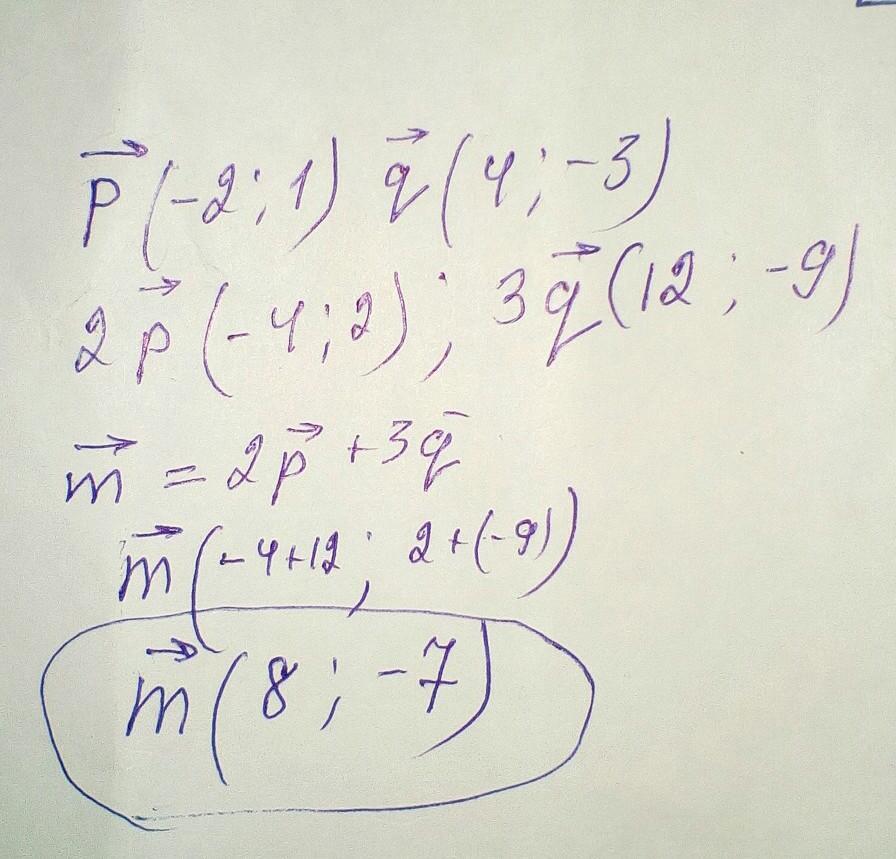 p⃗(-2;1) q⃗(4;-3)
2p⃗(-4;2); 3q⃗(12;-9)
m⃗ = 2p⃗ +3q̄
m⃗(-4+12; 2+(-9))
m⃗(8;-7)